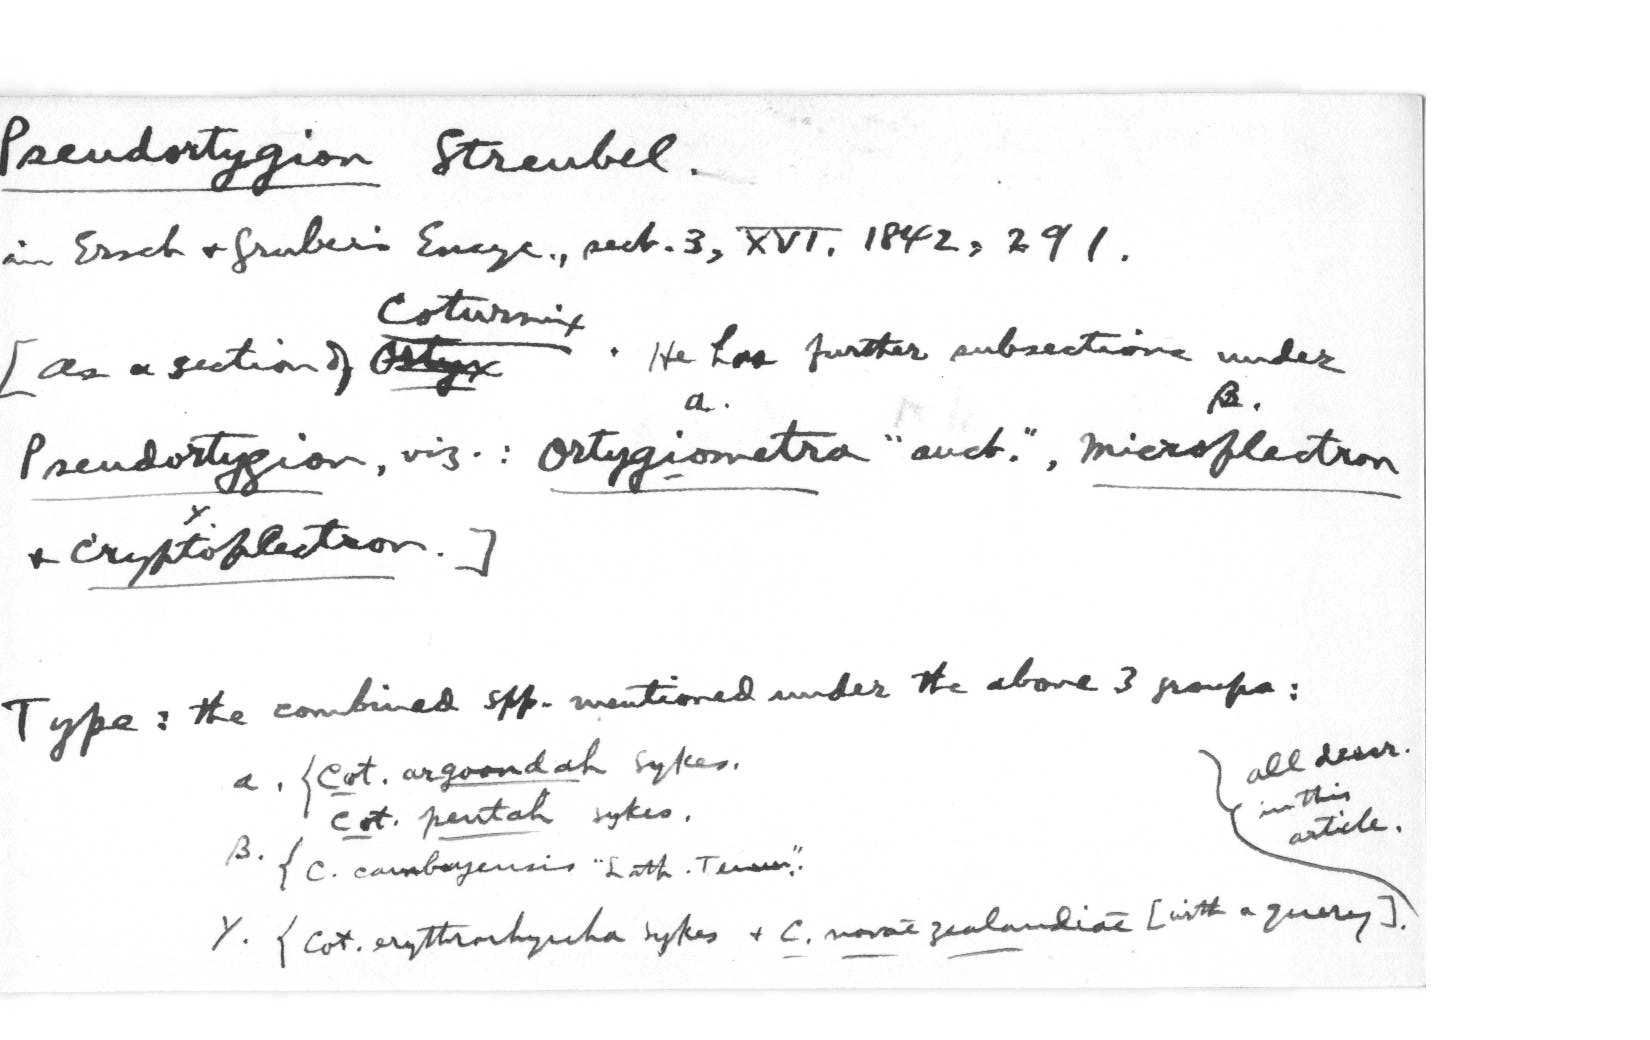 Pseudortygion Streubel.
in Ersch & Gruber's Encyc., sect. 3, XVI. 1842, 291.
Coturnix
[as a section of Ortyx . He has further subsections under
a. β.
Pseudortygion, viz.: Ortygiometra "auct.", Microplectron
γ
& Cryptoplectron.]
Type: the combined spp. mentioned under the above 3 groups:
a. { Cot. argoondah Sykes.
Cot. pentah Sykes.
β. { C. cambayensis "Lath. Temm".
γ. { Cot. erythrorhyncha Sykes & C. novae zealandiae [with a query].
all descr.
in this
article.